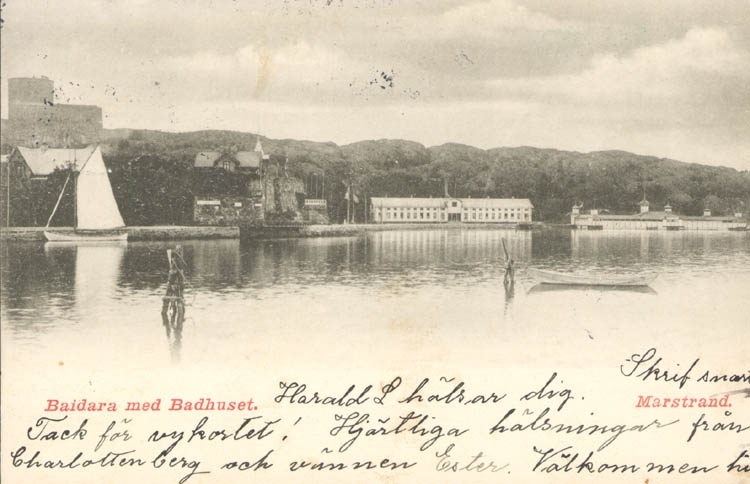 Skrif snart
Baidara med Badhuset. Harald L hälsar dig. Marstrand.
Tack för vykortet! Hjärtliga hälsningar från
Charlottenberg och vännen Ester. Välkommen